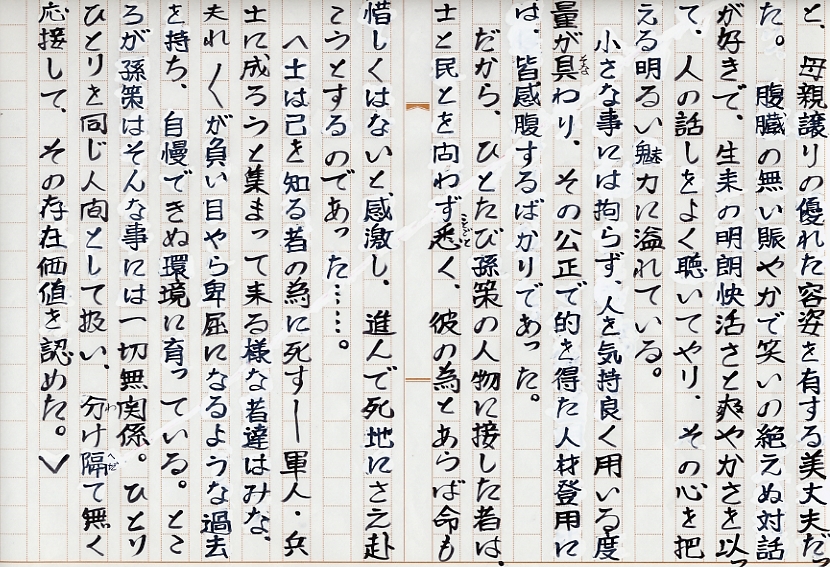 と、母親譲りの優れた容姿を有する美丈夫だっ
た。腹臓の無い賑やかで笑いの絶えぬ対話
が好きで、生来の明朗快活さと爽やかさを以っ
て、人の話しをよく聴いてやり、その心を把
える明るい魅力に溢れている。
小さな事には拘らず、人を気持良く用いる度
量が具わり、その公正で的を得た人材登用に
は、皆感腹するばかりであった。
だから、ひとたび孫策の人物に接した者は、
士と民とを問わず悉く、彼の為とあらば命も
惜しくはないと感激し、進んで死地にさえ赴
こうとするのであった……。
へ士は己を知る者の為に死すー軍人・兵
士に成ろうと集まって来る様な者達はみな、
夫れ〱が負い目やら卑屈になるような過去
を持ち、自慢できぬ環境に育っている。とこ
ろが孫策はそんな事には一切無関係。ひとり
ひとりを同じ人間として扱い、分け隔て無く
応接して、その存在価値を認めた。